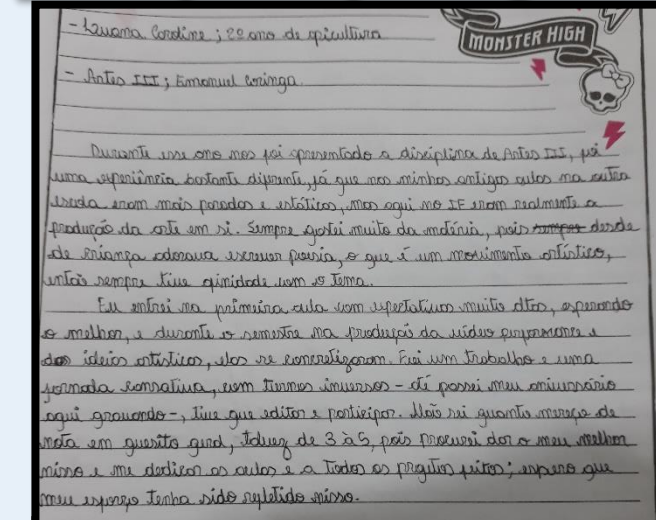 - Luana Caroline ; 2º ano de apicultura
MONSTER HIGH
- Artes III ; Emanuel Coringa.
Durante esse ano nos foi apresentado a disciplina de Artes III, foi
uma experiência bastante diferente, já que nos minhas antigas aulas na outra
escola eram mais parados e estáticos, mas aqui no IF eram realmente a
produção da arte em si. Sempre gostei muito da matéria, pois desde
de criança adorava escrever poesia, o que é um movimento artístico,
então sempre tive afinidade com o tema.
Eu entrei na primeira aula com expectativas muito altas, esperando
o melhor, e durante o semestre na produção da vídeo performance e
das ideias artísticas, elas se concretizaram. Foi um trabalho e uma
jornada cansativa, com turnos inversos - até passei meu aniversário
aqui gravando -, tive que editar e participar. Não sei quanto mereço de
nota em quesito geral, talvez de 3 à 5, pois procurei dar o meu melhor
nisso e me dedicar as aulas e a todos os projetos feitos; espero que
meu esforço tenha sido refletido nisso.